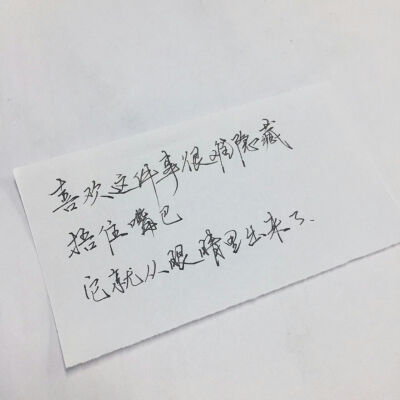 喜欢这件事很难隐藏
捂住嘴巴
它就从眼睛里出来了.